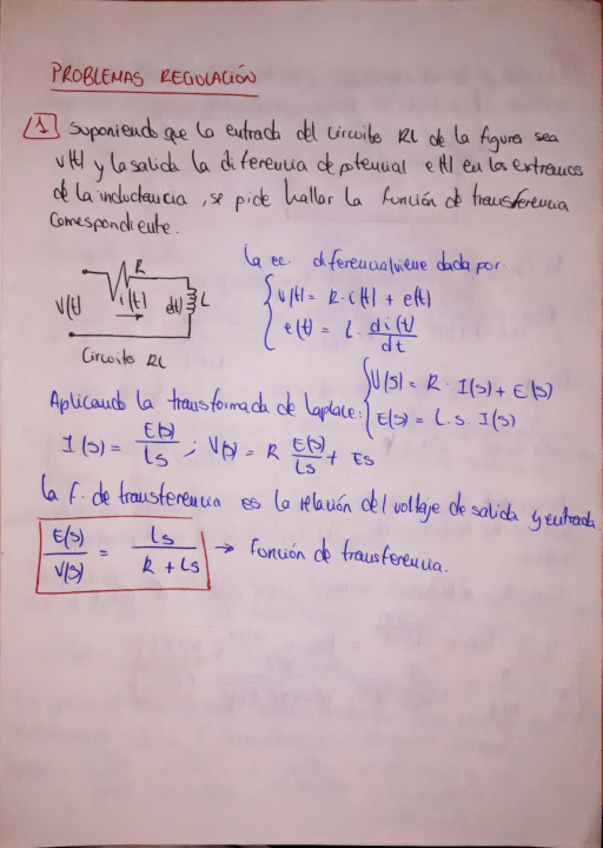 PROBLEMAS REGULACIÓN
1 Suponiendo que la entrada del circuito RL de la figura sea
v(t) y la salida la diferencia de potencial e(t) en los extremos
de la inductancia, se pide hallar la función de transferencia
correspondiente.
R
V(t) i(t) L
Circuito RL
La ec. diferencial viene dada por:
v(t) = R · i(t) + e(t)
e(t) = L · di(t)/dt
Aplicando la transformada de Laplace:
V(s) = R · I(s) + E(s)
E(s) = L.s. I(s)
I(s) = E(s)/Ls ; V(s) = R E(s)/Ls + Es
La f. de transferencia es la relación del voltaje de salida y entrada.
E(s)/V(s) = Ls/R + Ls → Función de transferencia.